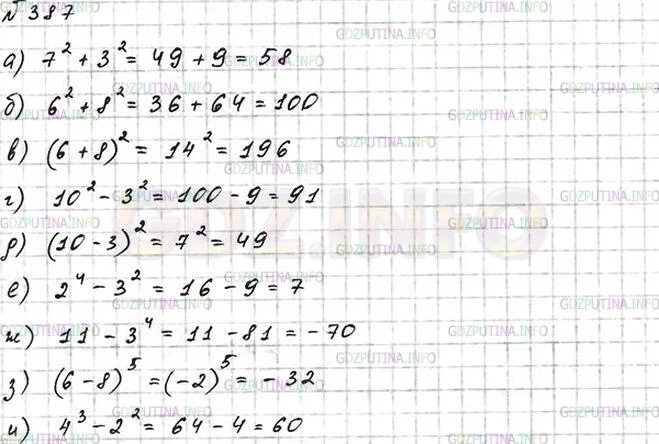 № 387
а) 7² + 3² = 49 + 9 = 58
б) 6² + 8² = 36 + 64 = 100
в) (6 + 8)² = 14² = 196
г) 10² - 3² = 100 - 9 = 91
д) (10 - 3)² = 7² = 49
е) 2⁴ - 3² = 16 - 9 = 7
ж) 11 - 3⁴ = 11 - 81 = - 70
з) (6 - 8)⁵ = (-2)⁵ = - 32
и) 4³ - 2² = 64 - 4 = 60
GDZ.INFO
GDZPUTINA.INFO